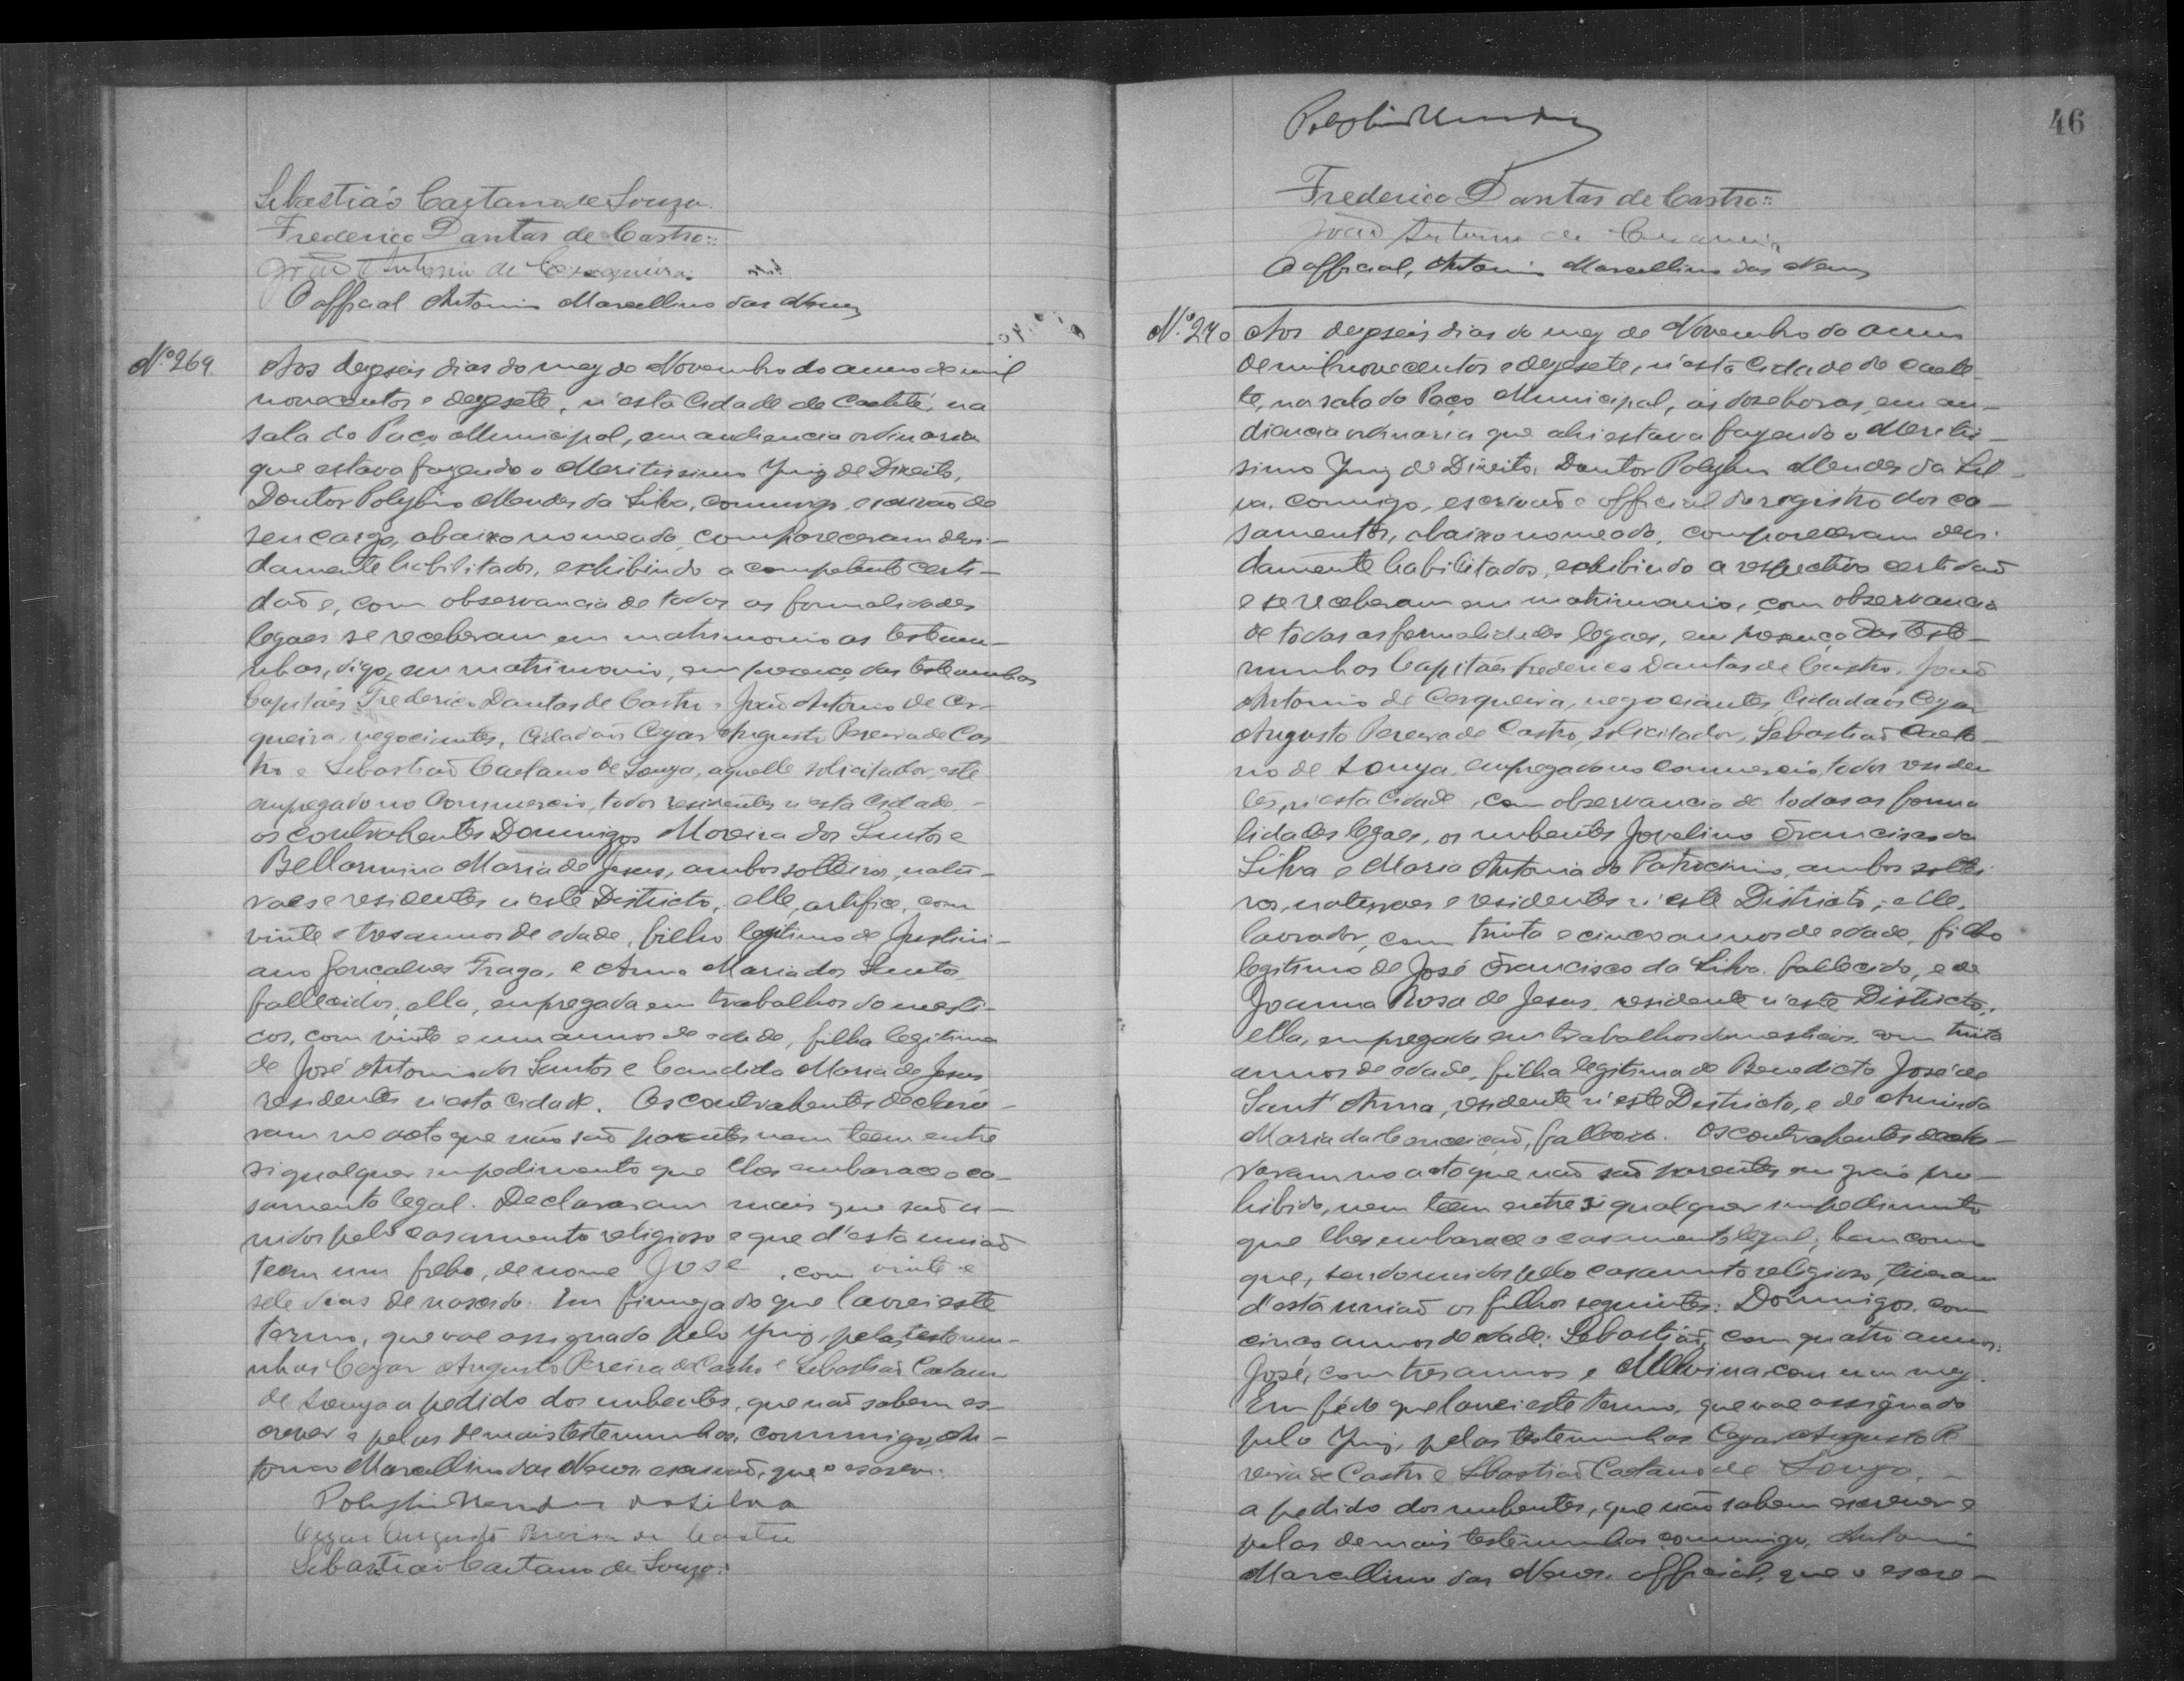 Sebastião Caetano de Souza.
Frederico Dantas de Castro::
João Antonio de Cerqueira.
O official Antonio Marcellino das Neves
Nº 269
Aos dezeseis dias do mez de Novembro do anno de mil
novecentos e dezesete, n'esta Cidade de Caeteté, na
sala do Paço Municipal, em audiencia ordinaria
que estava fazendo o Meritissimo Juiz de Direito,
Doutor Polybio Mendes da Silva, commigo, escrivão de
seu cargo, abaixo nomeado, compareceram devi-
damente habilitados, exhibindo a competente certi-
dão e, com observancia de todas as formalidades
legaes se receberam em matrimonio as testemu-
nhas, digo, em matrimonio, em presença das testemunhas
Capitães Frederico Dantas de Castro e João Antonio de Cer-
queira, negociantes, Cidadãos Cezar Augusto Pereira de Cas-
tro e Sebastião Caetano de Souza, aquelle solicitador, este
empregado no Commercio, todos residentes n'esta Cidade -
os contrahentes Domingos Moreira dos Santos e
Bellarmina Maria de Jesus, ambos solteiros, natu-
raes e residentes n'este Districto, elle, artifice, com
vinte e tres annos de edade, filho legitimo de Justini-
ano Gonçalves Fraga, e Anna Maria dos Santos,
fallecidos; ella, empregada em trabalhos domesti-
cos, com vinte e um annos de edade, filha legitima
de José Antonio dos Santos e Candida Maria de Jesus,
residentes n'esta Cidade. Os contrahentes declara-
ram no acto que não são parentes nem teem entre
si qualquer impedimento que lhes embarace o ca-
samento legal. Declararam mais que são u-
nidos pelo casamento religioso e que d'esta união
teem um filho, de nome José, com vinte e
sete dias de nascido. Em firmeza do que lavrei este
termo, que vae assignado pelo Juiz, pelas testemu-
nhas Cezar Augusto Pereira de Castro e Sebastião Caetano
de Souza a pedido dos nubentes, que não sabem es-
crever e pelas demais testemunhas, commigo, An-
tonio Marcellino das Neves, escrivão, que o escrevi.
Polybio Mendes da Silva
Cezar Augusto Pereira de Castro
Sebastião Caetano de Souza.
46
Polybio Mendes
Frederico Dantas de Castro::
João Antonio de Cerqueira
O official, Antonio Marcellino das Neves
Nº 270
Aos dezeseis dias do mez de Novembro do anno
de mil novecentos e dezesete, n'esta Cidade de Caete-
té, na sala do Paço Municipal, ás doze horas, em au-
diencia ordinaria que ahi estava fazendo o Meritis-
simo Juiz de Direito, Doutor Polybio Mendes da Sil-
va, commigo, escrivão e official do registro dos ca-
samentos, abaixo nomeado, compareceram devi-
damente habilitados, exhibindo a respectiva certidão
e se receberam em matrimonio, com observancia
de todas as formalidades legaes, em presença das teste-
munhas Capitães Frederico Dantas de Castro, João
Antonio de Cerqueira, negociantes, Cidadãos Cezar
Augusto Pereira de Castro, solicitador, Sebastião Caeta-
no de Souza, empregado no commercio, todos residen-
tes, n'esta Cidade, com observancia de todas as forma
lidades legaes, os nubentes Jovelino Francisco da
Silva e Maria Antonia do Patrocinio, ambos soltei-
ros, naturaes e residentes n'este Districto; elle,
lavrador, com trinta e cinco annos de edade, filho
legitimo de José Francisco da Silva, fallecido, e de
Joanna Rosa de Jesus, residente n'este Districto;
ella, empregada em trabalhos domesticos, com trinta
annos de edade, filha legitima de Benedicto José de
Sant'Anna, residente n'este Districto, e de
Maria da Conceição, fallecida. Os contrahentes decla-
raram no acto que não são parentes em gráo pro-
hibido, nem teem entre si qualquer impedimento
que lhes embarace o casamento legal; bem como
que, sendo unidos pelo casamento religioso, tiveram
d'esta união os filhos seguintes: Domingos, com
cinco annos de edade; Sebastião, com quatro annos;
José, com tres annos e Melvina, com um mez.
Em fé do que lavrei este termo, que vae assignado
pelo Juiz, pelas testemunhas Cezar Augusto Pe
reira de Castro e Sebastião Caetano de Souza, -
a pedido dos nubentes, que não sabem escrever e
pelas demais testemunhas commigo, Antonio
Marcellino das Neves, official, que o escre-